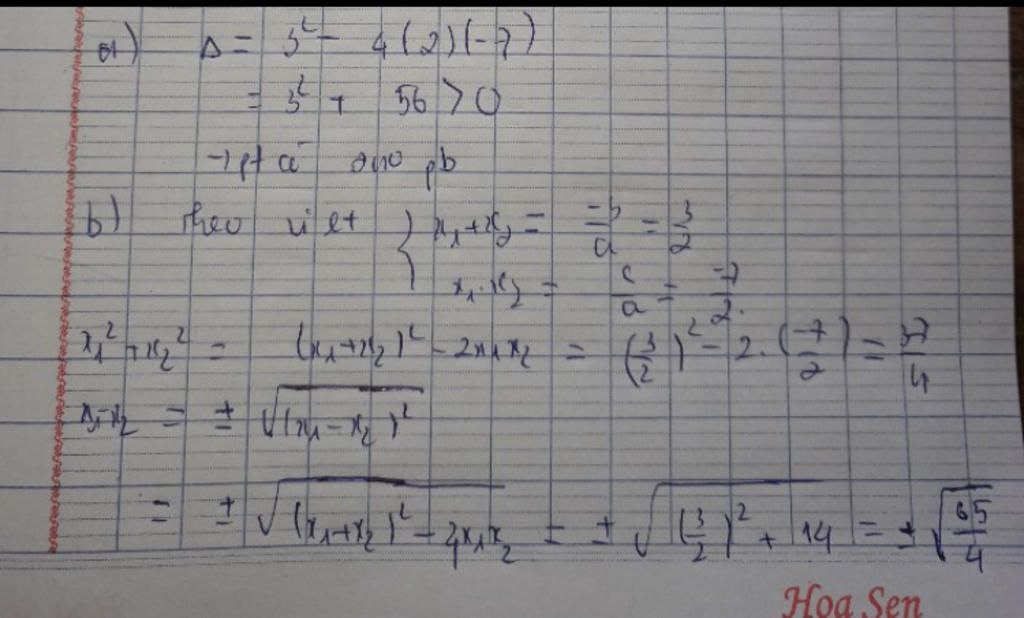 a) Δ = 3² - 4(2)(-7)
= 3² + 56 > 0
→ pt có 2no pb
b) Theo viet { x₁+x₂ = -b/a = 3/2
x₁.x₂ = c/a = -7/2.
x₁² + x₂² = (x₁+x₂)² - 2x₁x₂ = (3/2)² - 2.(-7/2) = 37/4
x₁-x₂ = ± √(x₁-x₂)²
= ± √(x₁+x₂)² - 4x₁x₂ = ± √(3/2)² + 14 = ± √65/4
Hoa Sen